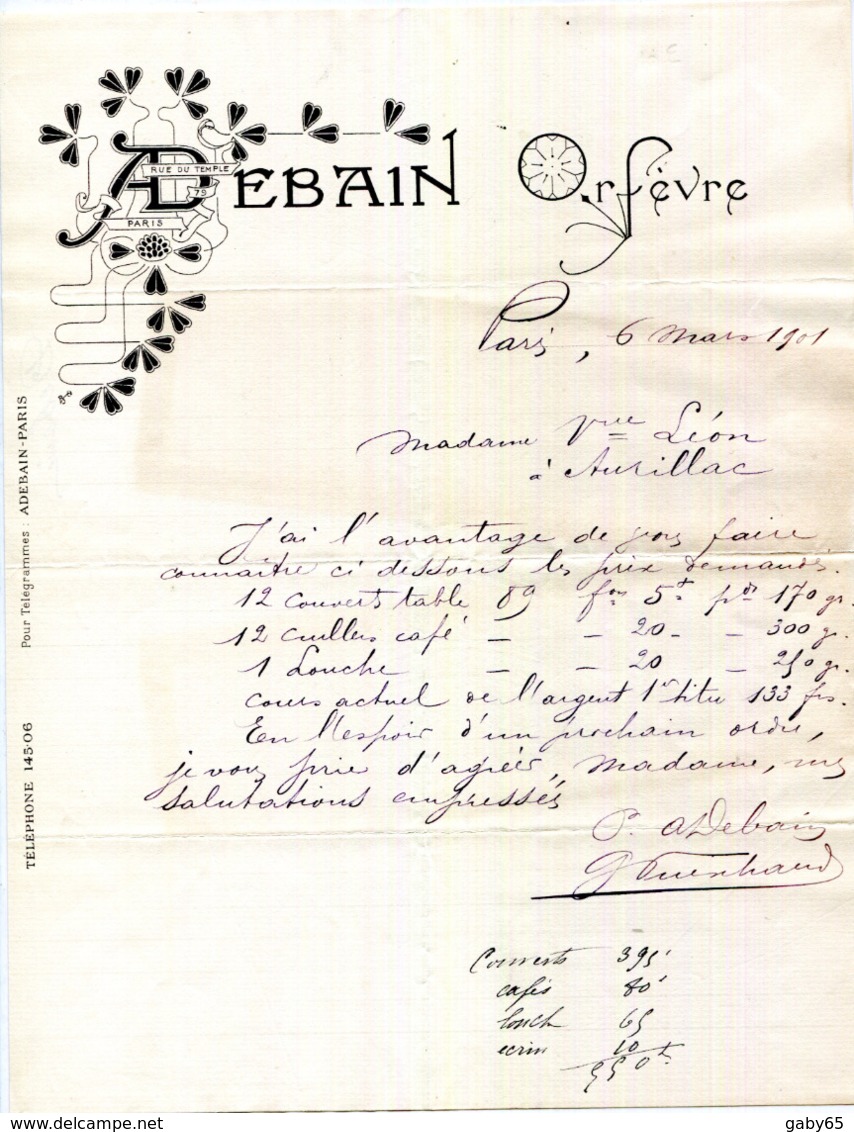 ADEBAIN Orfèvre
RUE DU TEMPLE
79
PARIS
Paris, 6 Mars 1901
Madame Vve Léon
à Aurillac
J'ai l'avantage de vous faire
connaitre ci dessous les prix demandés.
12 couvert table 89 fon 5t pds 170 gr.
12 cuillers café — — 20 - — 300 gr.
1 Louche — — 20 — 250 gr.
Cours actuel de l'argent 1er titre 133 frs.
En l'espoir d'un prochain ordre,
je vous prie d'agréer, Madame, mes
salutations empressés
P. ADebain
Pour Télégrammes : ADEBAIN-PARIS
TÉLÉPHONE 145-06
Couverts 395
cafés 80
louch 65
ecrin 10
550
www.delcampe.net
gaby65